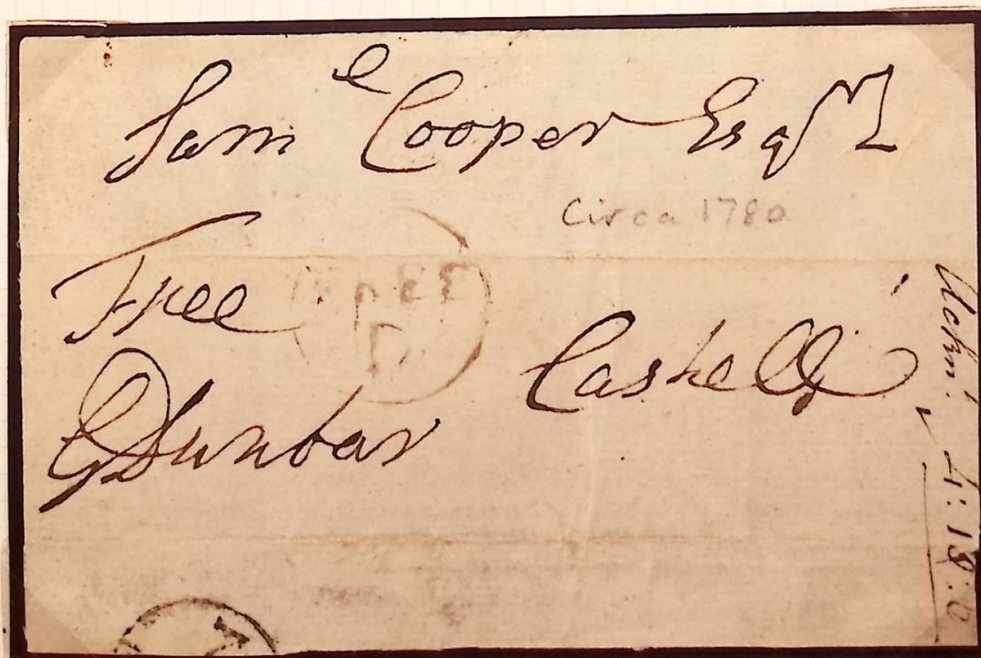 Sam^e Cooper Esq^r
Circa 1780
Free
Cashell
GDunbar